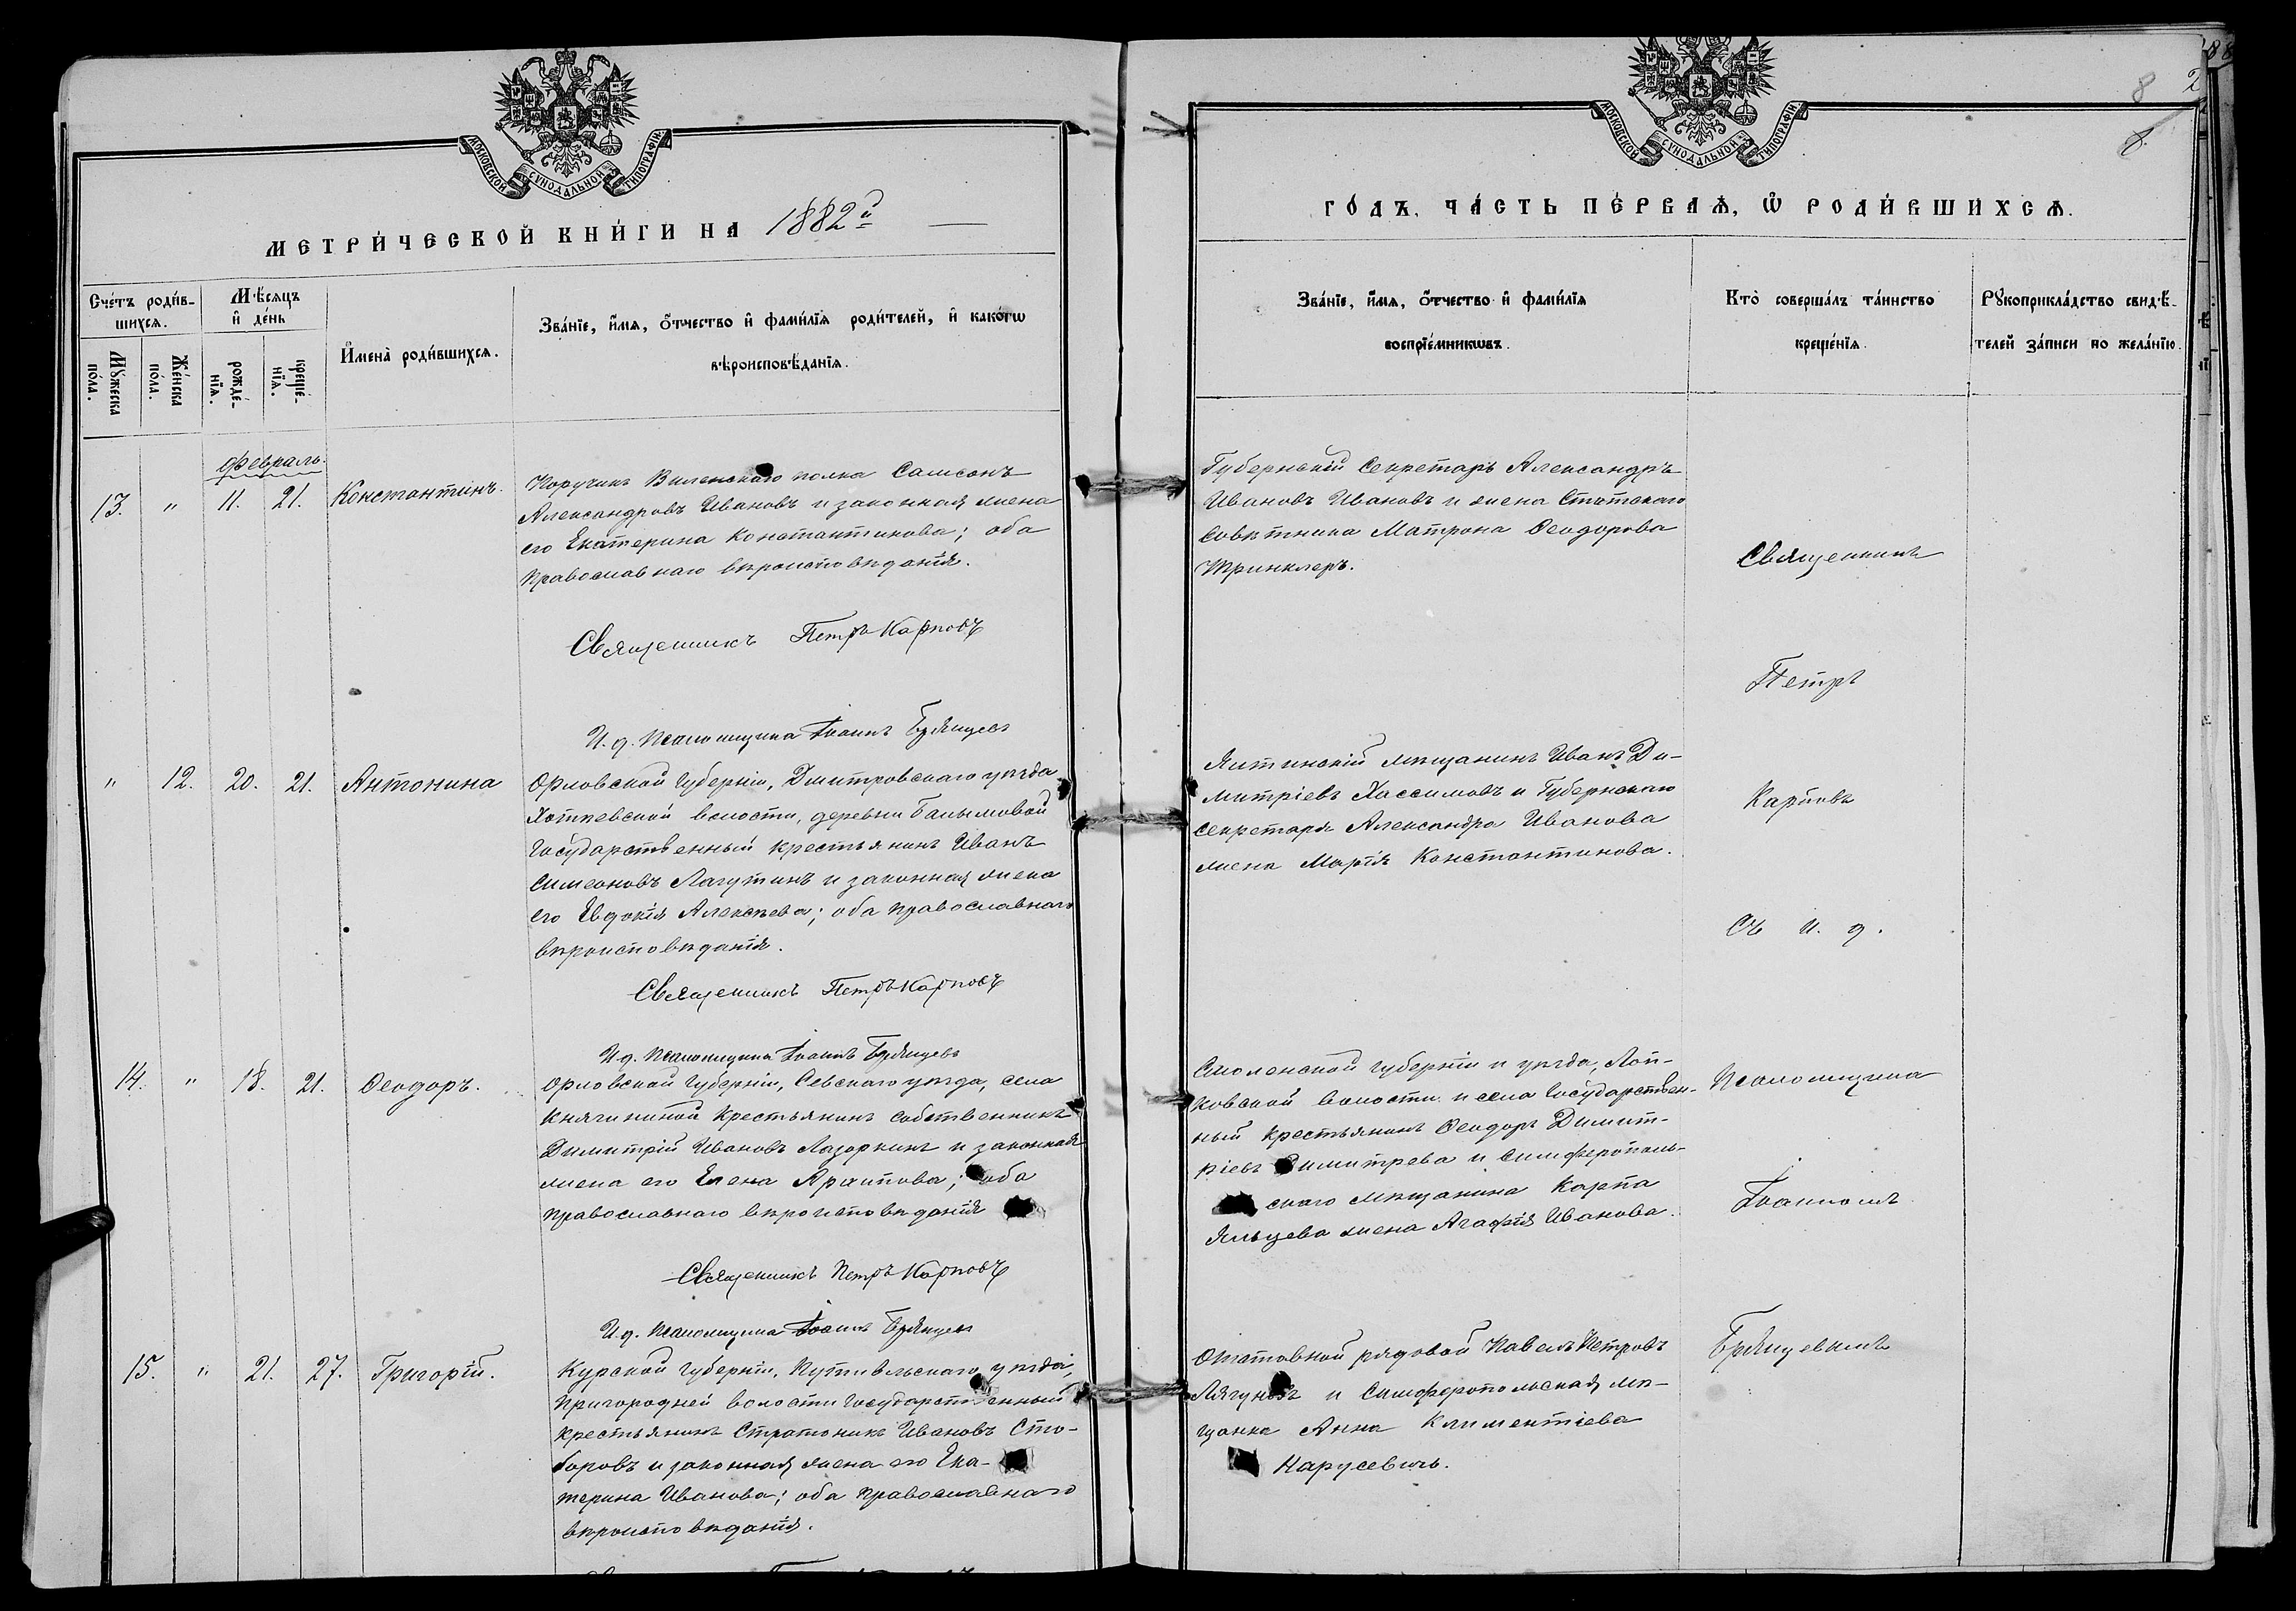 МОСКОВСКОЙ СѴНОДАЛЬНОЙ ТИПОГРАФІИ
МЕТРИ́ЧЕСКОЙ КНИ́ГИ НА 1882й
Сче́тъ роди́в-
шихсѧ.
Мѣ́сѧцъ
и҆ де́нь
Мꙋ́жеска
по́ла.
Же́нска
по́ла.
рожде́-
нїѧ.
креще́-
нїѧ.
И҆мена̀ роди́вшихсѧ.
Зва́нїе, и҆́мѧ, ѻ҆́тчество и҆ фами́лїѧ роди́телей, и҆ како́гѡ
вѣроисповѣ́данїѧ.
Февраль.
13. " 11. 21. Константинъ.
Поручикъ Виленскаго полка Самсонъ
Александровъ Ивановъ и законная жена
его Екатерина Константинова; оба
православнаго вѣроисповѣданія.
Священникъ Петръ Карповъ
И. д. Псаломщика Іоаннъ Брянцевъ
" 12. 20. 21. Антонина
Орловской Губерніи, Дмитровскаго уѣзда
Хотѣевской волости, деревни
Государственный крестьянинъ Иванъ
Симеоновъ Лагутинъ и законная жена
его Евдокія Алексѣева; оба православнаго
вѣроисповѣданія.
Священникъ Петръ Карповъ
И. д. Псаломщика Іоаннъ Брянцевъ
14. " 18. 21. Ѳеодоръ.
Орловской Губерніи, Севскаго уѣзда, села
Княгининой крестьянинъ собственникъ
Димитрій Ивановъ Лазоркинъ и законная
жена его Елена Архипова; оба
православнаго вѣроисповѣданія
Священникъ Петръ Карповъ
И. д. Псаломщика Іоаннъ Брянцевъ
15. " 21. 27. Григорій.
Курской Губерніи, Путивльскаго уѣзда,
Пригородней волости Государственный
крестьянинъ Стратоникъ Ивановъ Сто-
боровъ и законная жена его Ека-
терина Иванова; оба православнаго
вѣроисповѣданія.
МОСКОВСКОЙ СѴНОДАЛЬНОЙ ТИПОГРАФІИ
8
8.
ГО́ДЪ, ЧА́СТЬ ПЕ́РВАѦ, Ѡ҆ РОДИ́ВШИХСѦ.
Зва́нїе, и҆́мѧ, ѻ҆́тчество и҆ фами́лїѧ
воспрїе́мникѡвъ.
Кто̀ соверша́лъ та́инство
креще́нїѧ.
Рꙋкоприкла́дство свидѣ́-
телей за́писи по жела́нїю.
Губернскій Секретарь Александръ
Ивановъ Ивановъ и жена Статскаго
Совѣтника Матрона Ѳеодорова
Тринклеръ.
Ялтинскій мѣщанинъ Иванъ Ди-
митріевъ Хассимовъ и Губернскаго
секретаря Александра Иванова
жена Марія Константинова.
Смоленской Губерніи и уѣзда, Лоп-
ковской волости и села Государствен-
ный крестьянинъ Ѳеодоръ Димит-
ріевъ Димитрева и симферополь-
скаго мѣщанина Карпа
Яльцева жена Агафія Иванова.
Отставной рядовой Павелъ Петровъ
Лягуновъ и Симферопольская мѣ-
щанка Анна Климентіева
Карусевичъ.
Священникъ
Петръ
Карповъ
Съ и. д.
Псаломщика
Іоанномъ
Брянцевымъ